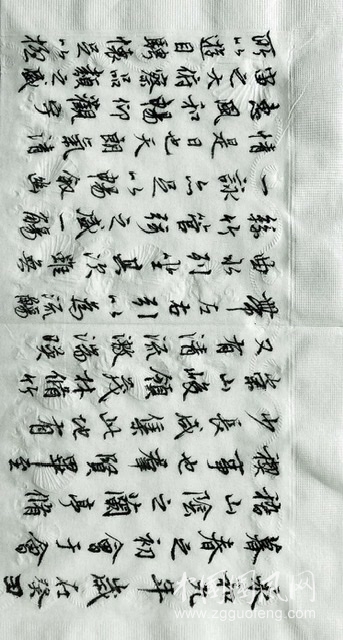 永和九年歲在癸丑
暮春之初會于會
稽山陰之蘭亭脩
禊事也羣賢畢至
少長咸集此地有
崇山峻領茂林脩竹
又有清流激湍暎
帶左右引以為流觴
曲水列坐其次雖無
絲竹管弦之盛一觴
一詠亦足以暢敘幽
情是日也天朗氣清
惠風和暢仰觀宇
宙之大俯察品類之盛
所以遊目騁懷足以極
中国国风网
www.zgguofeng.com